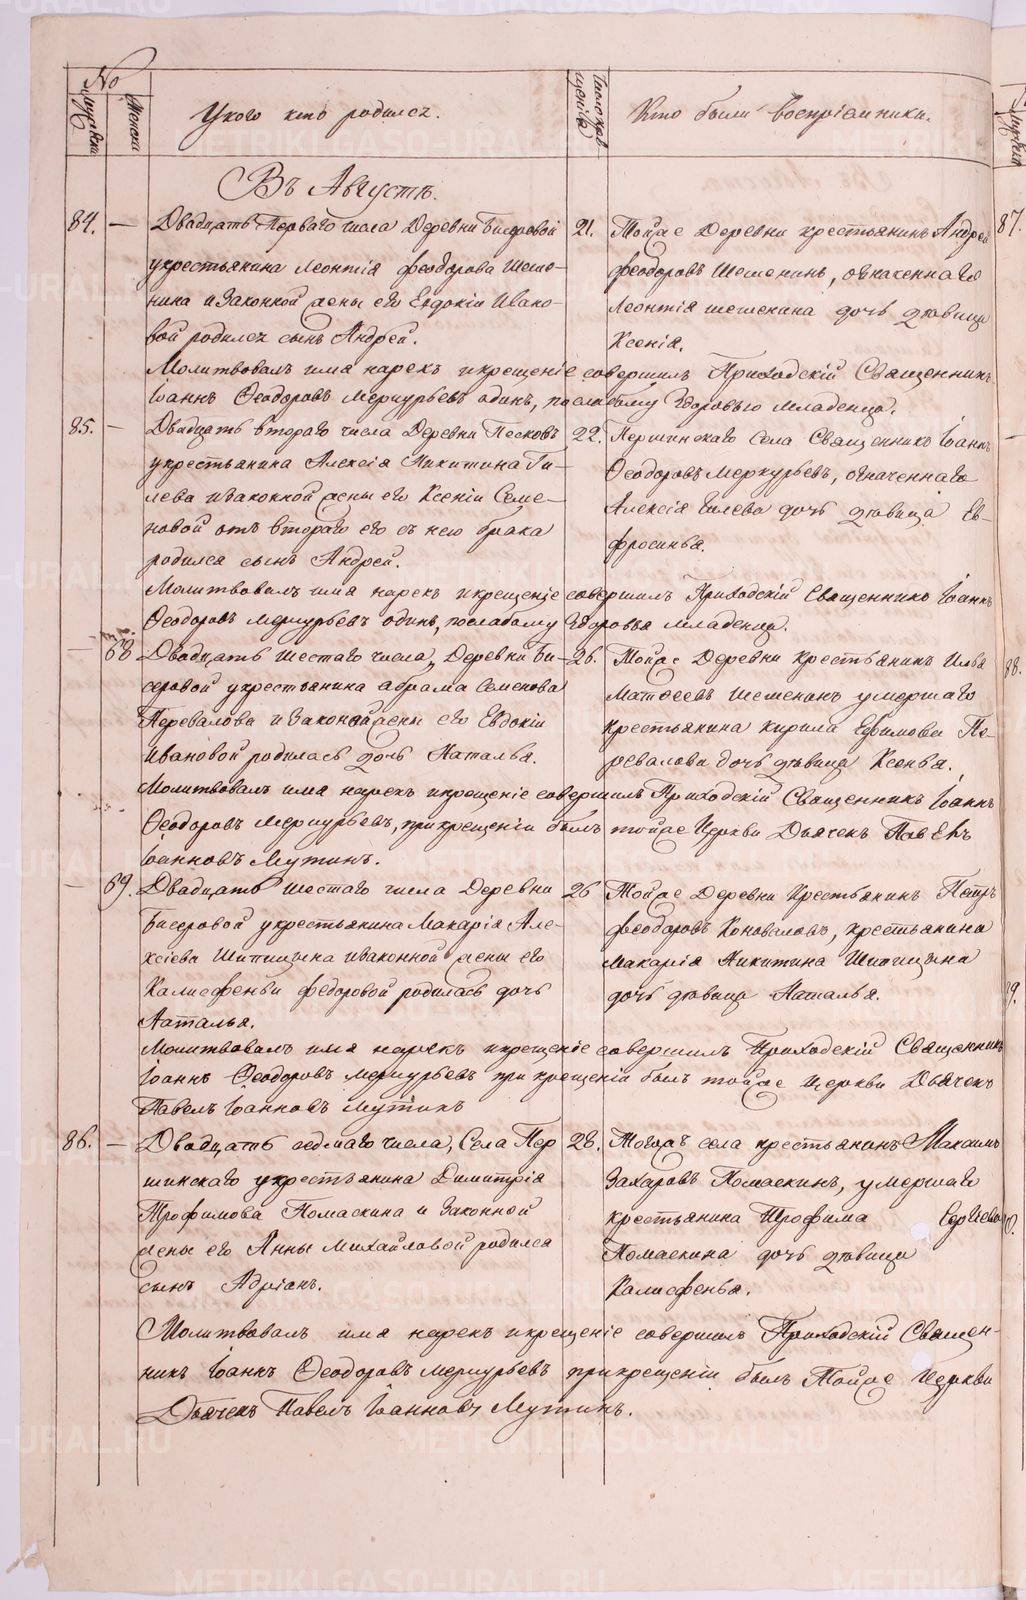 №
Мужеска
Женска
У кого кто родился.
Число крещенія
Кто были воспріемники.
Въ Августѣ.
84. — Двадцать перваго числа Деревни Бисеровой
у крестьянина Леонтія Феодорова Шеме-
нина и законной жены его Евдокіи Ивано-
вой родился сынъ Андрей.
21. Тойже Деревни крестьянинъ Андрей
Феодоровъ Шеменинъ, означеннаго
Леонтія Шеменина дочь дѣвица
Ксенія.
Молитвовалъ имя нарекъ и крещеніе совершилъ Приходскій Священникъ
Іоаннъ Ѳеодоровъ Меркурьевъ одинъ, по слабому здоровью младенца.
85. — Двадцать втораго числа Деревни Песковъ
у крестьянина Алексія Никитина Ги-
лева и законной жены его Ксеніи Семе-
новой отъ втораго его съ нею брака
родился сынъ Андрей.
22. Першинскаго Села Священникъ Іоаннъ
Ѳеодоровъ Меркурьевъ, означеннаго
Алексія Гилева дочь дѣвица Ев-
фросинья.
Молитвовалъ имя нарекъ и крещеніе совершилъ Приходскій Священникъ Іоаннъ
Ѳеодоровъ Меркурьевъ одинъ, по слабому здоровья младенца.
— 68 Двадцать шестаго числа, Деревни Би-
серовой у крестьянина Абрама Семенова
Перевалова и законной жены его Евдокіи
Ивановой родилась дочь Наталья.
26. Тойже Деревни крестьянинъ Илья
Матѳеевъ Шеменинъ умершаго
крестьянина Кирила Ефимова Пе-
ревалова дочь дѣвица Ксенья.
Молитвовалъ имя нарекъ и крещеніе совершилъ Приходскій Священникъ Іоаннъ
Ѳеодоровъ Меркурьевъ, при крещеніи былъ тойже Церкви Дьячекъ Павелъ
Іоанновъ Мутинъ.
— 69. Двадцать шестаго числа Деревни
Бисеровой у крестьянина Макарія Але-
ксіева Шипицына и законной жены его
Калисфеньи Федоровой родилась дочь
Наталья.
26 Тойже Деревни Крестьянинъ Петръ
Феодоровъ Коноваловъ, крестьянина
Макарія Никитина Шипицына
дочь дѣвица Наталья.
Молитвовалъ имя нарекъ и крещеніе совершилъ Приходскій Священникъ
Іоаннъ Ѳеодоровъ Меркурьевъ при крещеніи былъ тойже Церкви Дьячекъ
Павелъ Іоанновъ Мутинъ
86. — Двадцать седмаго числа, Села Пер
шинскаго у крестьянина Димитрія
Трофимова Помаскина и законной
жены его Анны Михайловой родился
сынъ Адріанъ.
28. Тогожъ села крестьянинъ Максимъ
Захаровъ Помаскинъ, умершаго
крестьянина Трофима
Помаскина дочь дѣвица
Калисфенья.
Молитвовалъ имя нарекъ и крещеніе совершилъ Приходскій Священ-
никъ Іоаннъ Ѳеодоровъ Меркурьевъ при крещеніи былъ Тойже Церкви
Дьячекъ Павелъ Іоанновъ Мутинъ.
87.
88.
METRIKI.GASO-URAL.RU